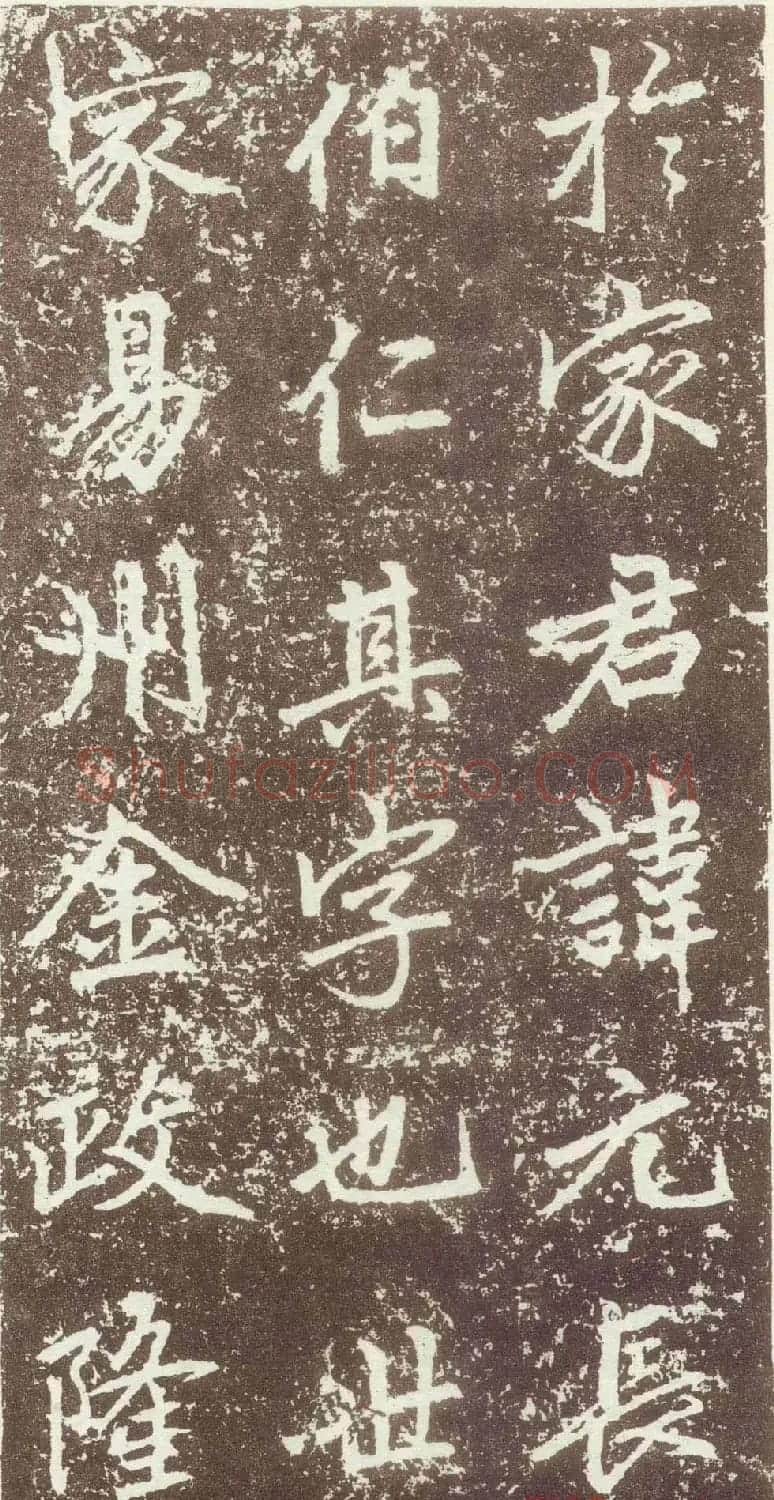 於家君諱元長
伯仁其字也世
家易州金政隆
Shufaziliao.COM